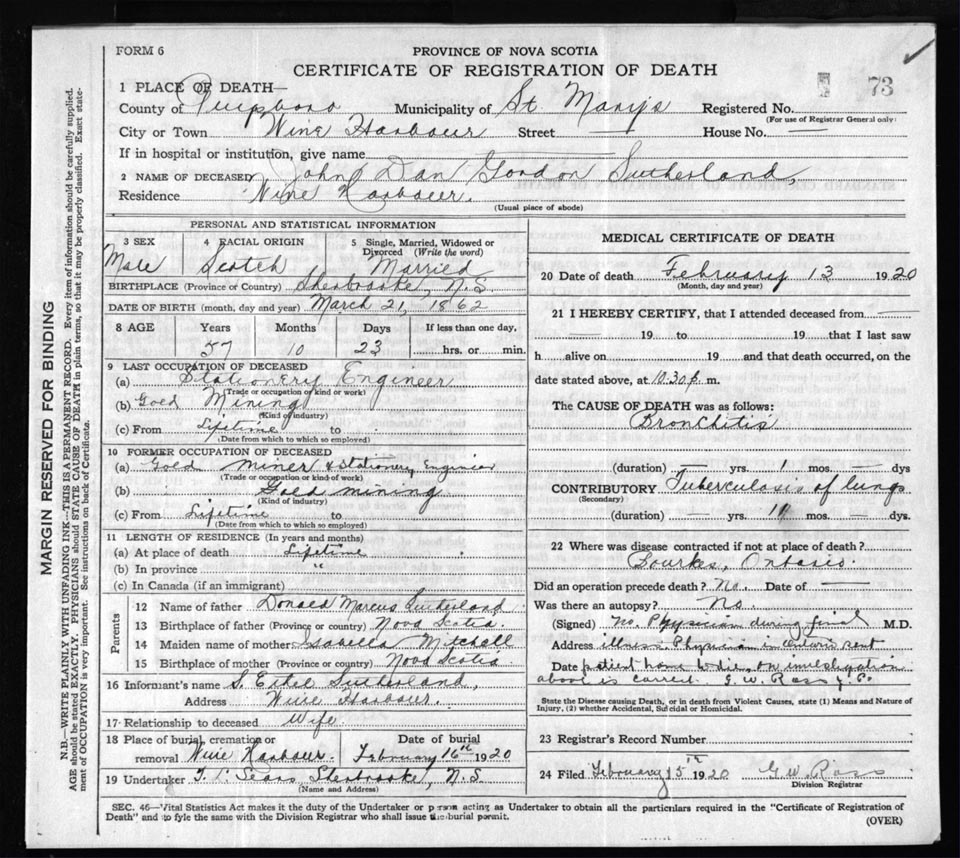 FORM 6
PROVINCE OF NOVA SCOTIA
CERTIFICATE OF REGISTRATION OF DEATH
73
1 PLACE OF DEATH—
County of Municipality of St. Mary's Registered No.
(For use of Registrar General only)
City or Town Wine Harbour Street — House No. —
If in hospital or institution, give name
2 NAME OF DECEASED John Dan Gordon Sutherland,
Residence Wine Harbour.
(Usual place of abode)
PERSONAL AND STATISTICAL INFORMATION
3 SEX 4 RACIAL ORIGIN 5 Single, Married, Widowed or Divorced (Write the word)
Male Scotch Married
BIRTHPLACE (Province or Country) Sherbrooke, N.S.
DATE OF BIRTH (month, day and year) March 21, 1862
8 AGE Years Months Days If less than one day,
57 10 23 hrs. or min.
9 LAST OCCUPATION OF DECEASED
(a) Stationery Engineer
(Trade or occupation or kind or work)
(b) Goed Mining
(Kind of industry)
(c) From Lifetime to
(Date from which to which so employed)
10 FORMER OCCUPATION OF DECEASED
(a) Goed miner & stationery Engineer
(Trade or occupation or kind of work)
(b) Gold mining
(Kind of industry)
(c) From Lifetime to
(Date from which to which so employed)
11 LENGTH OF RESIDENCE (In years and months)
(a) At place of death Lifetime
(b) In province "
(c) In Canada (if an immigrant)
Parents
12 Name of father Donald Marcus Sutherland
13 Birthplace of father (Province or country) Nova Scotia.
14 Maiden name of mother Isabella Mitchell
15 Birthplace of mother (Province or country) Nova Scotia
16 Informant's name S. Ethel Sutherland,
Address Wine Harbour.
17 Relationship to deceased Wife
18 Place of burial, cremation or removal Wine Harbour. Date of burial February 16th 1920
19 Undertaker Sears Sherbrooke, N.S.
(Name and Address)
MEDICAL CERTIFICATE OF DEATH
20 Date of death February 13 1920
(Month, day and year)
21 I HEREBY CERTIFY, that I attended deceased from —
— 19 to 19 that I last saw
h alive on 19 and that death occurred, on the
date stated above, at 10.30 p. m.
The CAUSE OF DEATH was as follows:
Bronchitis
(duration) — yrs. 1 mos. — dys
CONTRIBUTORY Tuberculosis of lungs
(Secondary)
(duration) — yrs. 11 mos. — dys.
22 Where was disease contracted if not at place of death?
Ontario.
Did an operation precede death? No. Date of —
Was there an autopsy? No.
(Signed) No Physician during final M.D.
Address illness. Physician in sent
Date patient home to die, on investigation
above is correct. G. W. Ross
State the Disease causing Death, or in death from Violent Causes, state (1) Means and Nature of
Injury, (2) whether Accidental, Suicidal or Homicidal.
23 Registrar's Record Number
24 Filed February 15th 1920 G. W. Ross
Division Registrar
SEC. 46—Vital Statistics Act makes it the duty of the Undertaker or person acting as Undertaker to obtain all the particulars required in the "Certificate of Registration of
Death" and to fyle the same with the Division Registrar who shall issue the burial permit.
(OVER)
MARGIN RESERVED FOR BINDING
N.B.—WRITE PLAINLY WITH UNFADING INK—THIS IS A PERMANENT RECORD. Every item of information should be carefully supplied.
AGE should be stated EXACTLY. PHYSICIANS should STATE CAUSE OF DEATH in plain terms, so that it may be properly classified. Exact state-
ment of OCCUPATION is very important. See instructions on back of Certificate.